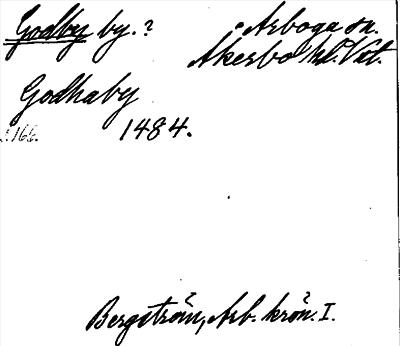 Godby by.? Arboga sn.
Åkerbo hd. Vstm.
Godhaby
1484.
s. 166.
Bergström, Arb. krön. I.